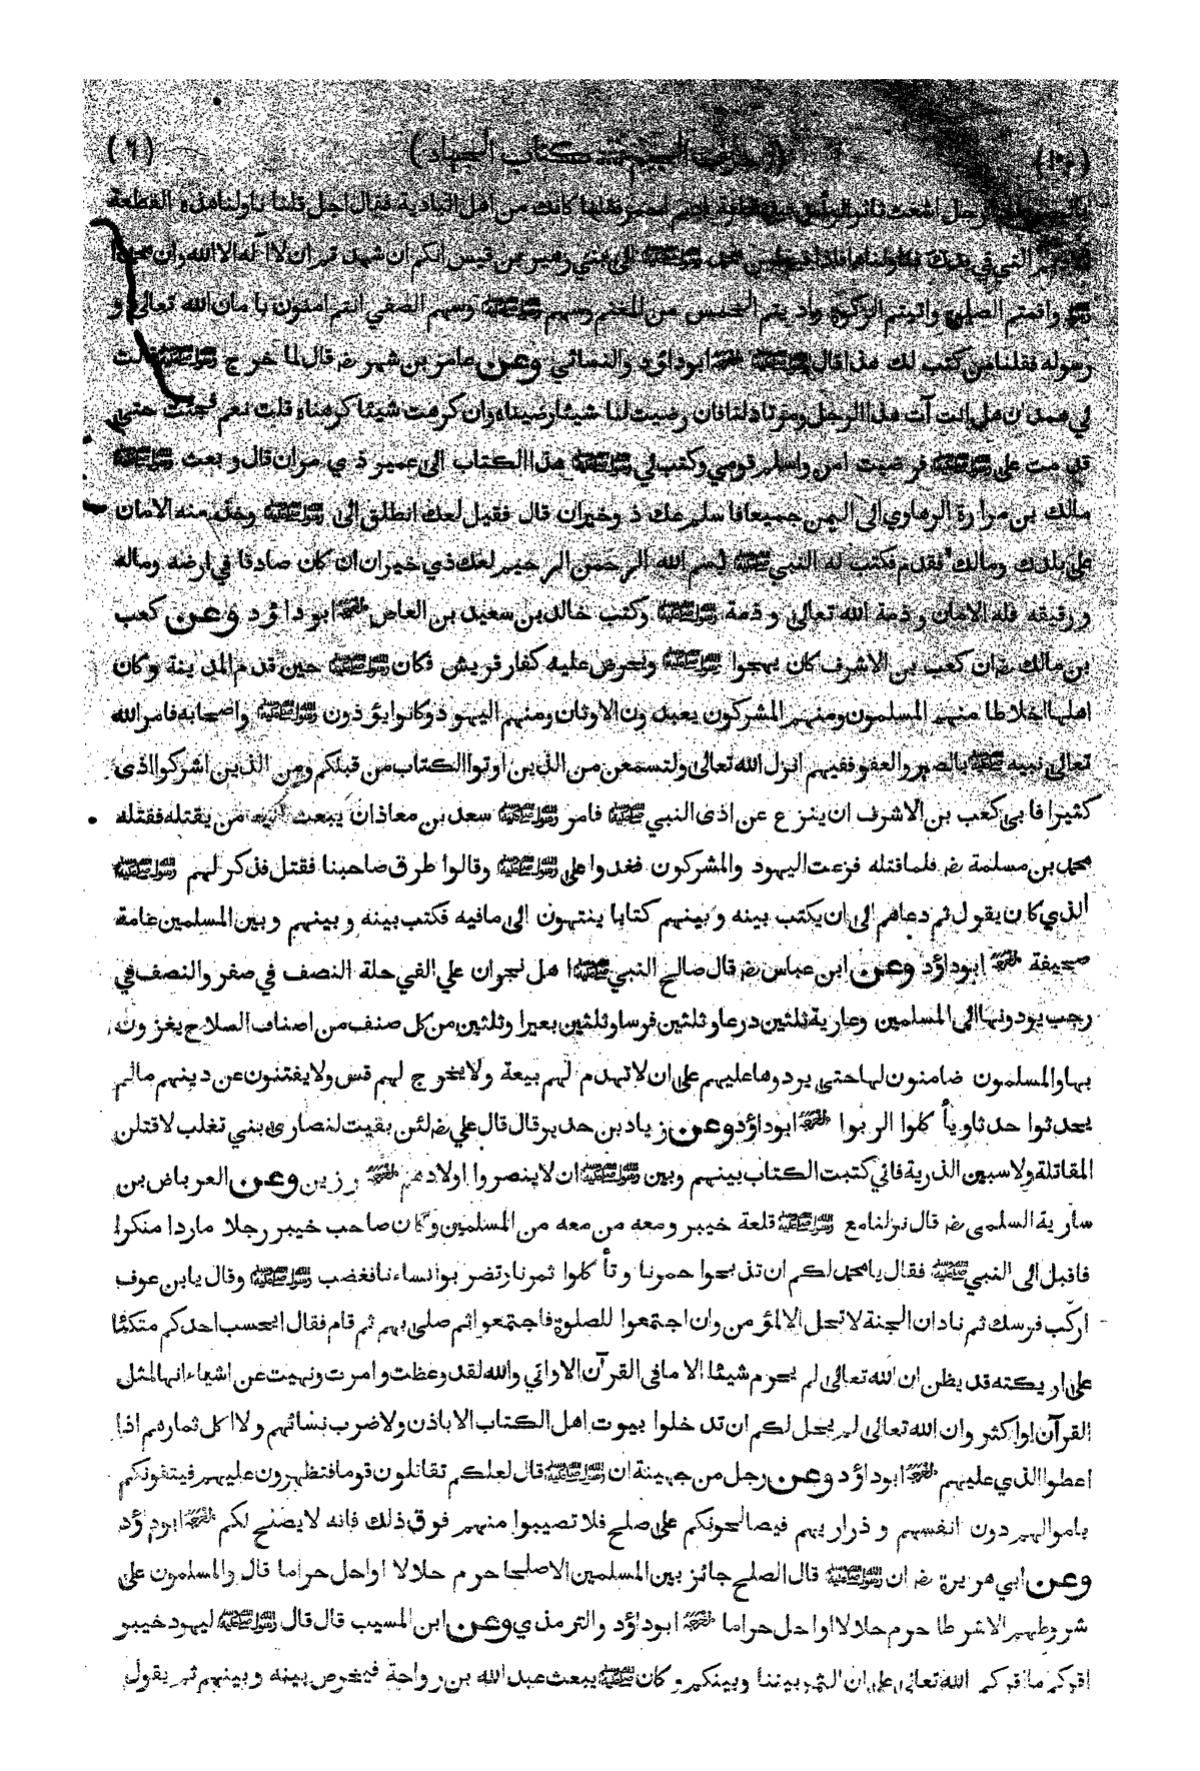 (٦) كتاب الجهاد) (١٠٠)
رجل اشعث ثائر الرأس اديم احمر فقلنا كانك من اهل البادية فقال اجل قلنا ناولنا هذه القطعة
التي في يدك فناولناها فقرأناها فاذا فيها من محمد رسول الله ﷺ الى بني زهير بن قيس انكم ان شهدتم ان لا اله الا الله وان محمدا
واقمتم الصلوة واتيتم الزكوة واديتم الخمس من المغنم وسهم رسول الله ﷺ وسهم الصفي انتم امنون بامان الله تعالى و
رسوله فقلنا من كتب لك هذا قال رسول الله ﷺ اخرجه ابو داؤد والنسائي وعن عامر بن شهر رضـ قال لما خرج رسول الله ﷺ قالت
لي همدان هل انت آت هذا الرجل ومرتاد لنا فان رضيت لنا شيئا رضيناه وان كرهت شيئا كرهناه قلت نعم فجئت حتى
قدمت على رسول الله ﷺ فرضيت امره واسلم قومي وكتب لي رسول الله ﷺ هذا الكتاب الى عمير ذي مران قال و بعث رسول الله ﷺ
مالك بن مرارة الرهاوي الى اليمن جميعا فاسلم عك ذو خيران قال فقيل لعك انطلق الى رسول الله ﷺ وخذ منه الامان
على بلدك ومالك فقدم فكتب له النبي ﷺ بسم الله الرحمن الرحيم لعك ذي خيران ان كان صادقا في ارضه وماله
ورقيقه فله الامان وذمة الله تعالى وذمة رسول الله ﷺ وكتب خالد بن سعيد بن العاص اخرجه ابو داؤد وعن كعب
بن مالك رضـ ان كعب بن الاشرف كان يهجوا رسول الله ﷺ ويحرض عليه كفار قريش فكان رسول الله ﷺ حين قدم المدينة وكان
اهلها اخلاطا منهم المسلمون ومنهم المشركون يعبدون الاوثان ومنهم اليهود وكانوا يؤذون رسول الله ﷺ واصحابه فامر الله
تعالى نبيه ﷺ بالصبر والعفو ففيهم انزل الله تعالى ولتسمعن من الذين اوتوا الكتاب من قبلكم ومن الذين اشركوا اذى
كثيرا فابى كعب بن الاشرف ان ينزع عن اذى النبي ﷺ فامر رسول الله ﷺ سعد بن معاذ ان يبعث اليه من يقتله فقتله
محمد بن مسلمة رضـ فلما قتله فزعت اليهود والمشركون فغدوا على رسول الله ﷺ وقالوا طرق صاحبنا فقتل فذكر لهم رسول الله ﷺ
الذي كان يقول ثم دعاهم الى ان يكتب بينه وبينهم كتابا ينتهون الى ما فيه فكتب بينه وبينهم وبين المسلمين عامة
صحيفة اخرجه ابو داؤد وعن ابن عباس رضـ قال صالح النبي ﷺ اهل نجران علي الفي حلة النصف في صفر والنصف في
رجب يودونها الى المسلمين وعارية ثلثين درعا وثلثين فرسا وثلثين بعيرا وثلثين من كل صنف من اصناف السلاح يغزون
بها والمسلمون ضامنون لها حتى يردوها عليهم على ان لا تهدم لهم بيعة ولا يخرج لهم قس ولا يفتنون عن دينهم مالم
يحدثوا حدثا ويأكلوا الربوا اخرجه ابو داؤد وعن زياد بن حدير قال قال علي رضـ لئن بقيت لنصارى بني تغلب لاقتلن
المقاتلة ولاسبين الذرية فاني كتبت الكتاب بينهم وبين رسول الله ﷺ ان لا ينصروا اولادهم اخرجه رزين وعن العرباض بن
سارية السلمى رضـ قال نزلنا مع رسول الله ﷺ قلعة خيبر ومعه من معه من المسلمين وكان صاحب خيبر رجلا ماردا منكرا
فاقبل الى النبي ﷺ فقال يا محمد لكم ان تذبحوا حمرنا وتأكلوا ثمرنا وتضربوا نساءنا فغضب رسول الله ﷺ وقال يا بن عوف
اركب فرسك ثم ناد ان الجنة لا تحل الا لمؤمن وان اجتمعوا للصلوة فاجتمعوا ثم صلى بهم ثم قام فقال ايحسب احدكم متكئا
على اريكته قد يظن ان الله تعالى لم يحرم شيئا الا ما في القرآن الا واني والله لقد وعظت وامرت ونهيت عن اشياء انها لمثل
القرآن او اكثر وان الله تعالى لم يحل لكم ان تدخلوا بيوت اهل الكتاب الا باذن ولا ضرب نسائهم ولا اكل ثمارهم اذا
اعطوا الذي عليهم اخرجه ابو داؤد وعن رجل من جهينة ان رسول الله ﷺ قال لعلكم تقاتلون قوما فتظهرون عليهم فيتقونكم
باموالهم دون انفسهم وذراريهم فيصالحونكم على صلح فلا تصيبوا منهم فوق ذلك فانه لا يصلح لكم اخرجه ابو داؤد
وعن ابي هريرة رضـ ان رسول الله ﷺ قال الصلح جائز بين المسلمين الا صلحا حرم حلالا او احل حراما قال والمسلمون على
شروطهم الا شرطا حرم حلالا او احل حراما اخرجه ابو داؤد والترمذي وعن ابن المسيب قال قال رسول الله ﷺ ليهود خيبر
اقركم ما اقركم الله تعالى على ان الثمر بيننا وبينكم وكان ﷺ يبعث عبد الله بن رواحة فيخرص بينه وبينهم ثم يقول